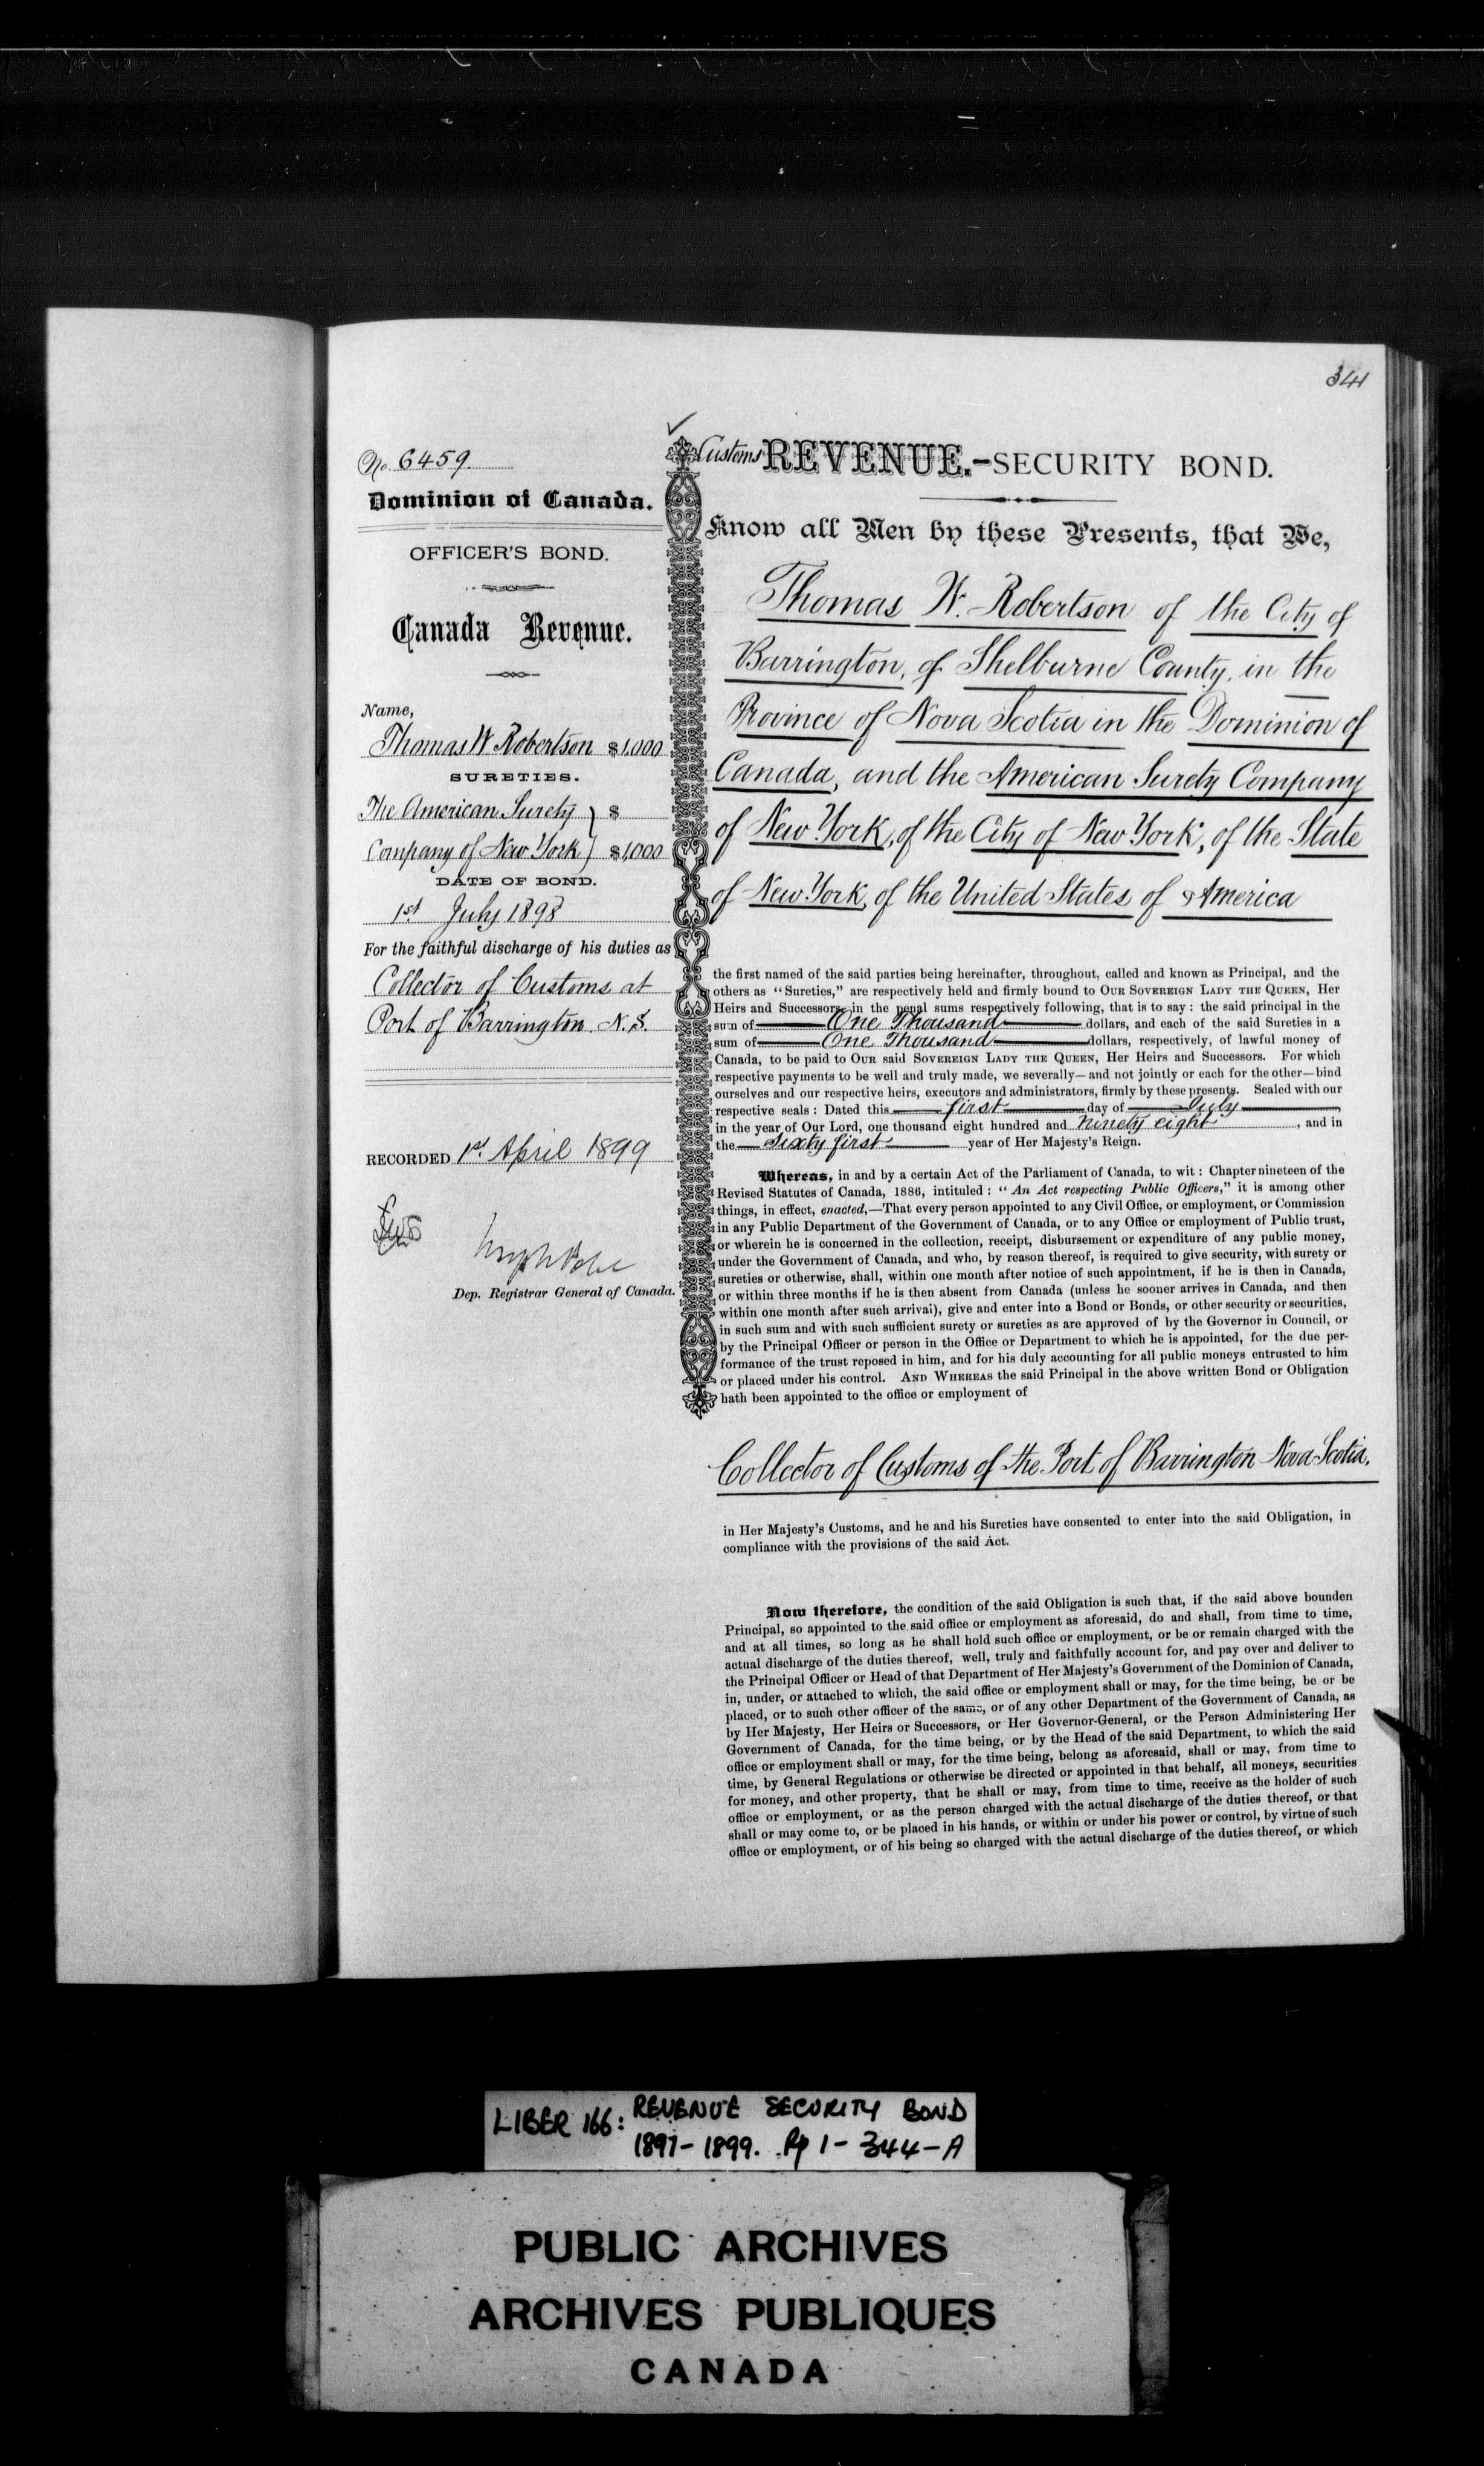 341
No. 6459.
Dominion of Canada.
OFFICER'S BOND.
Canada Revenue.
Name,
Thomas W. Robertson $1,000
SURETIES.
The American Surety } $
Company of New York } $1,000
DATE OF BOND.
1st July 1898
For the faithful discharge of his duties as
Collector of Customs at
Port of Barrington N.S.
RECORDED 1st April 1899
Dep. Registrar General of Canada.
Customs REVENUE.-SECURITY BOND.
Know all Men by these Presents, that We,
Thomas W. Robertson of the City of
Barrington, of Shelburne County, in the
Province of Nova Scotia in the Dominion of
Canada, and the American Surety Company
of New York, of the City of New York, of the State
of New York, of the United States of America
the first named of the said parties being hereinafter, throughout, called and known as Principal, and the
others as "Sureties," are respectively held and firmly bound to OUR SOVEREIGN LADY THE QUEEN, Her
Heirs and Successors, in the penal sums respectively following, that is to say: the said principal in the
sum of One Thousand dollars, and each of the said Sureties in a
sum of One Thousand dollars, respectively, of lawful money of
Canada, to be paid to OUR said SOVEREIGN LADY THE QUEEN, Her Heirs and Successors. For which
respective payments to be well and truly made, we severally—and not jointly or each for the other—bind
ourselves and our respective heirs, executors and administrators, firmly by these presents. Sealed with our
respective seals: Dated this first day of July,
in the year of Our Lord, one thousand eight hundred and ninety eight, and in
the Sixty first year of Her Majesty's Reign.
Whereas, in and by a certain Act of the Parliament of Canada, to wit: Chapter nineteen of the
Revised Statutes of Canada, 1886, intituled: "An Act respecting Public Officers," it is among other
things, in effect, enacted,—That every person appointed to any Civil Office, or employment, or Commission
in any Public Department of the Government of Canada, or to any Office or employment of Public trust,
or wherein he is concerned in the collection, receipt, disbursement or expenditure of any public money,
under the Government of Canada, and who, by reason thereof, is required to give security, with surety or
sureties or otherwise, shall, within one month after notice of such appointment, if he is then in Canada,
or within three months if he is then absent from Canada (unless he sooner arrives in Canada, and then
within one month after such arrival), give and enter into a Bond or Bonds, or other security or securities,
in such sum and with such sufficient surety or sureties as are approved of by the Governor in Council, or
by the Principal Officer or person in the Office or Department to which he is appointed, for the due per-
formance of the trust reposed in him, and for his duly accounting for all public moneys entrusted to him
or placed under his control. AND WHEREAS the said Principal in the above written Bond or Obligation
hath been appointed to the office or employment of
Collector of Customs of the Port of Barrington Nova Scotia.
in Her Majesty's Customs, and he and his Sureties have consented to enter into the said Obligation, in
compliance with the provisions of the said Act.
Now therefore, the condition of the said Obligation is such that, if the said above bounden
Principal, so appointed to the said office or employment as aforesaid, do and shall, from time to time,
and at all times, so long as he shall hold such office or employment, or be or remain charged with the
actual discharge of the duties thereof, well, truly and faithfully account for, and pay over and deliver to
the Principal Officer or Head of that Department of Her Majesty's Government of the Dominion of Canada,
in, under, or attached to which, the said office or employment shall or may, for the time being, be or be
placed, or to such other officer of the same, or of any other Department of the Government of Canada, as
by Her Majesty, Her Heirs or Successors, or Her Governor-General, or the Person Administering Her
Government of Canada, for the time being, or by the Head of the said Department, to which the said
office or employment shall or may, for the time being, belong as aforesaid, shall or may, from time to
time, by General Regulations or otherwise be directed or appointed in that behalf, all moneys, securities
for money, and other property, that he shall or may, from time to time, receive as the holder of such
office or employment, or as the person charged with the actual discharge of the duties thereof, or that
shall or may come to, or be placed in his hands, or within or under his power or control, by virtue of such
office or employment, or of his being so charged with the actual discharge of the duties thereof, or which
LIBER 166: REVENUE SECURITY BOND
1897-1899. Pp 1-344-A
PUBLIC ARCHIVES
ARCHIVES PUBLIQUES
CANADA